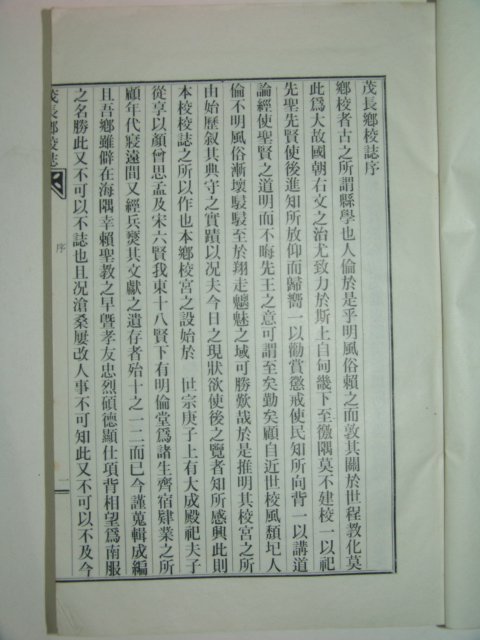 茂長鄉校誌序
鄉校者古之所謂縣學也人倫於是乎明風俗賴之而敦其關於世程教化莫
此爲大故國朝右文之治尤致力於斯上自甸畿下至徼隅莫不建校一以祀
先聖先賢使後進知所放仰而歸嚮一以勸賞懲戒使民知所向背一以講道
論經使聖賢之道明而不晦先王之意可謂至矣勤矣顧自近世校風頹圮人
倫不明風俗漸壞駸駸至於翔走魍魅之域可勝歎哉於是推明其校宮之所
由始歷叙其典守之實蹟以况夫今日之現狀欲使後之覽者知所感興此則
本校校誌之所以作也本鄉校宮之設始於 世宗庚子上有大成殿祀夫子
從享以顏曾思孟及宋六賢我東十八賢下有明倫堂爲諸生齊宿肄業之所
顧年代寢遠間又經兵燹其文獻之遺存者殆十之一二而已今謹蒐輯成編
且吾鄉雖僻在海隅幸賴聖敎之早曁孝友忠烈碩德顯仕項背相望爲南服
之名勝此又不可以不誌也且况滄桑屢改人事不可知此又不可以不及今
茂長鄉校誌
序
一